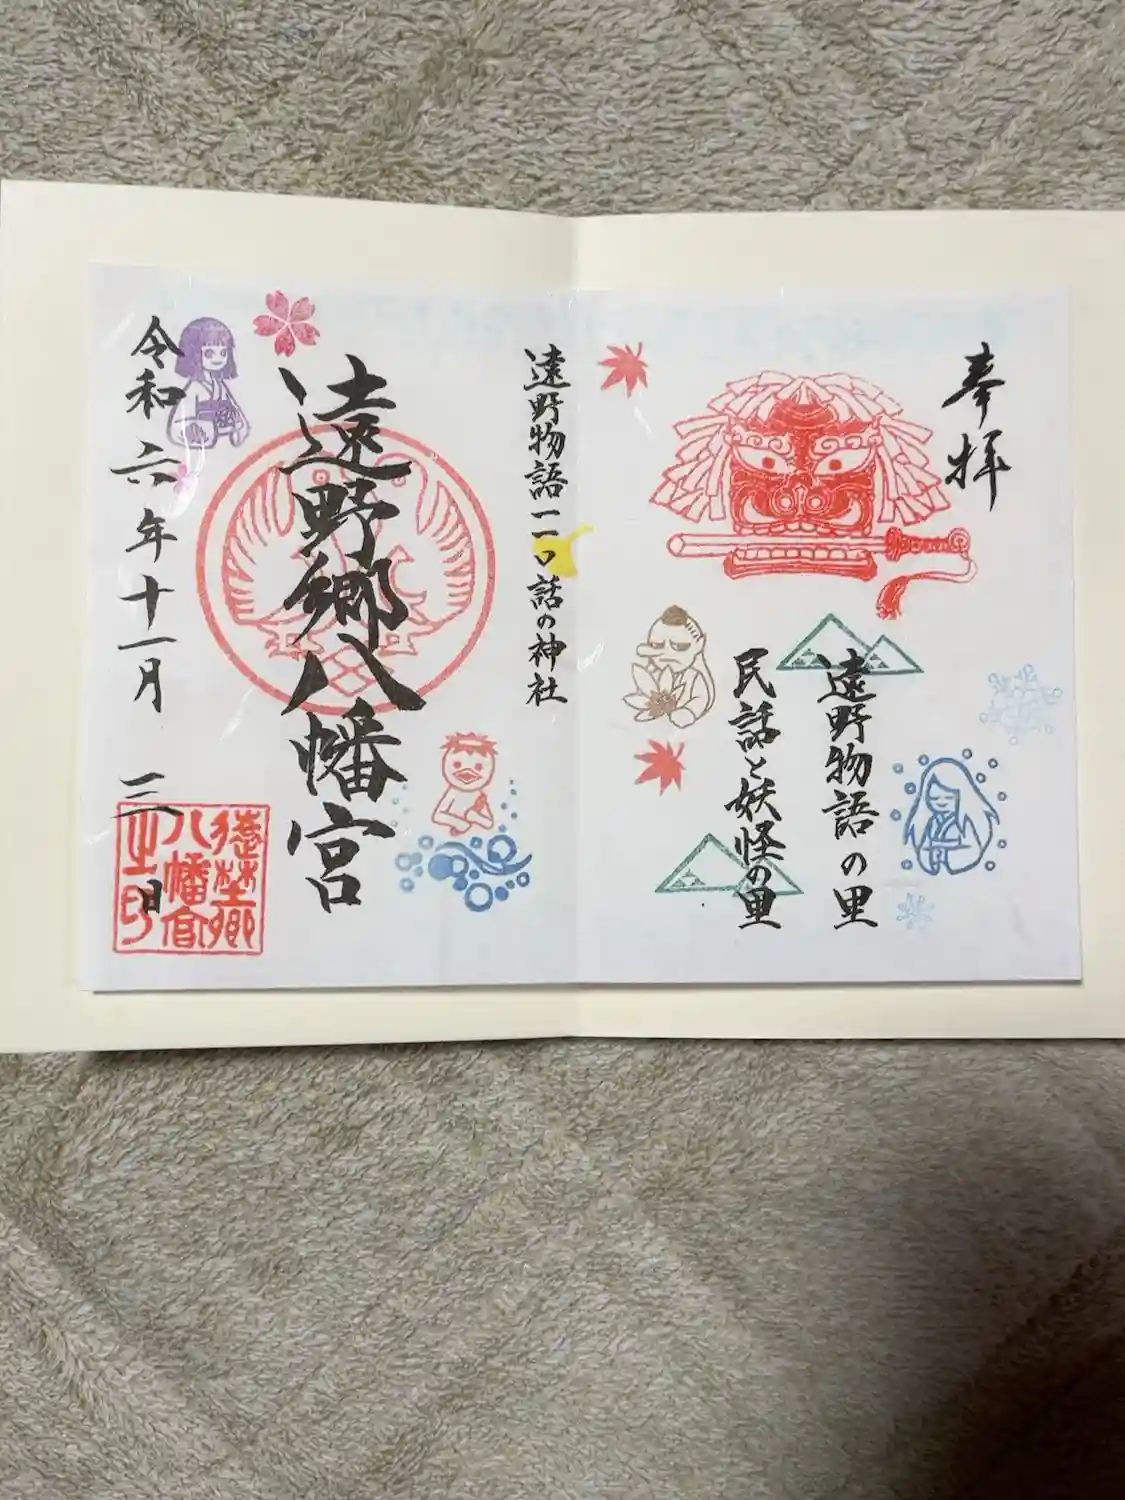 奉拝
遠野物語の里
民話と妖怪の里
遠野物語一一〇話の神社
遠野郷八幡宮
令和六年十一月三日
遠野郷
八幡宮
之印